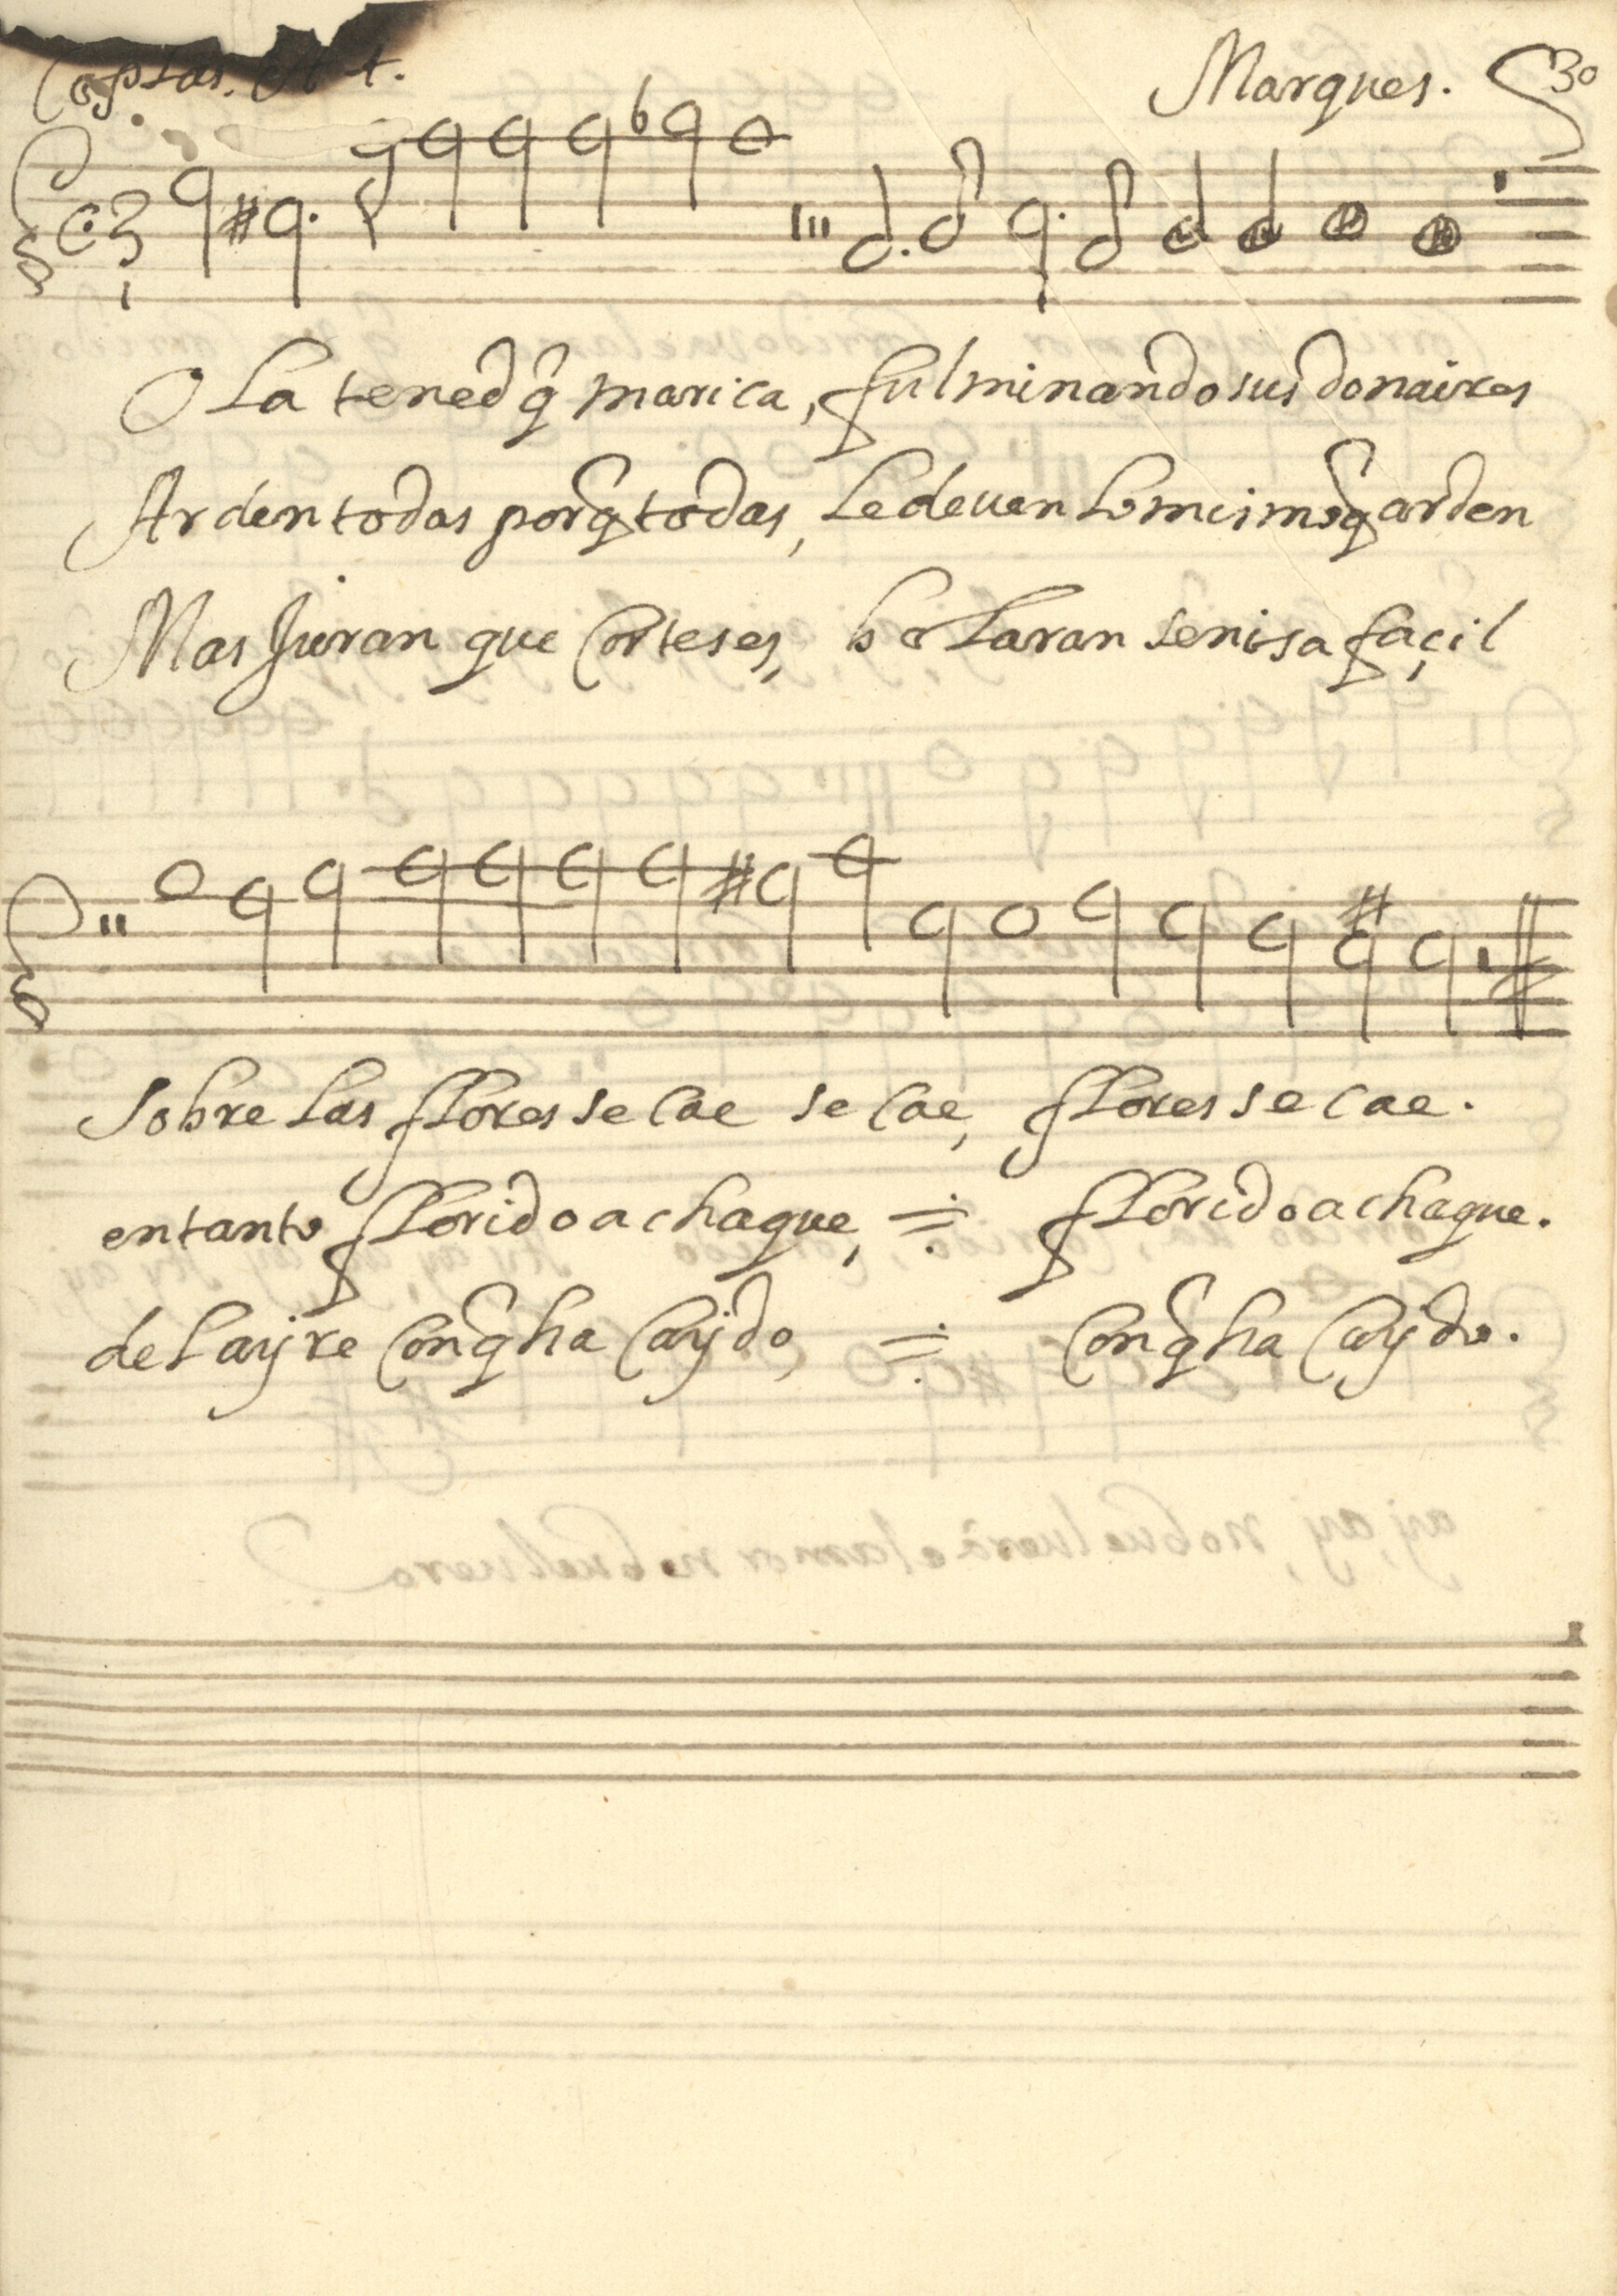 Coplas. A 4. Marques. 30
O la tened q̃ marica, fulminando sus donaires
Arden todas porq̃ todas, le deuen lo mismo q̃ arden
Mas Juran que Corteses, bolaran senisa façil
Sobre las flores se cae se cae, flores se cae.
entanto florido achaque, florido achaque.
del ayre Conq̃ ha Caydo, Conq̃ ha Caydo.